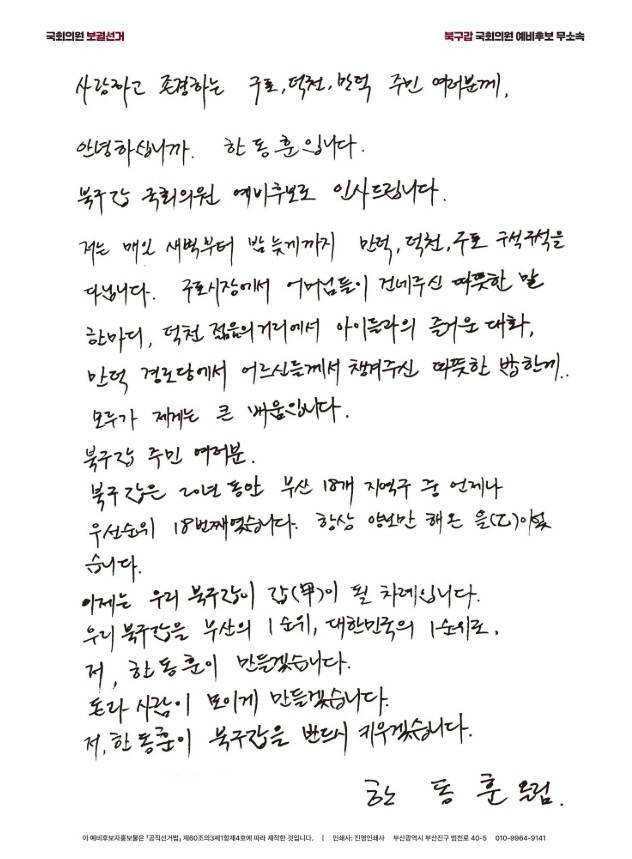 국회의원 보궐선거
북구갑 국회의원 예비후보 무소속
사랑하고 존경하는 구포, 덕천, 만덕 주민 여러분께,
안녕하십니까. 한동훈입니다.
북구갑 국회의원 예비후보로 인사드립니다.
저는 매일 새벽부터 밤 늦게까지 만덕, 덕천, 구포 구석구석을
다닙니다. 구포시장에서 어머님들이 건네주신 따뜻한 말
한마디, 덕천 젊음의거리에서 아이들과의 즐거운 대화,
만덕 경로당에서 어르신들께서 챙겨주신 따뜻한 밥한끼..
모두가 제게는 큰 배움입니다.
북구갑 주민 여러분.
북구갑은 20년 동안 부산 18개 지역구 중 언제나
우선순위 18번째였습니다. 항상 양보만 해온 을(乙)이었
습니다.
이제는 우리 북구갑이 갑(甲)이 될 차례입니다.
우리 북구갑을 부산의 1순위, 대한민국의 1순위로,
저, 한동훈이 만들겠습니다.
돈과 사람이 모이게 만들겠습니다.
저, 한동훈이 북구갑을 반드시 키우겠습니다.
한 동 훈 올림.
이 예비후보자홍보물은 「공직선거법」 제60조의3제1항제4호에 따라 제작한 것입니다. | 인쇄사: 진영인쇄사 부산광역시 부산진구 범전로 40-5 010-9964-9141